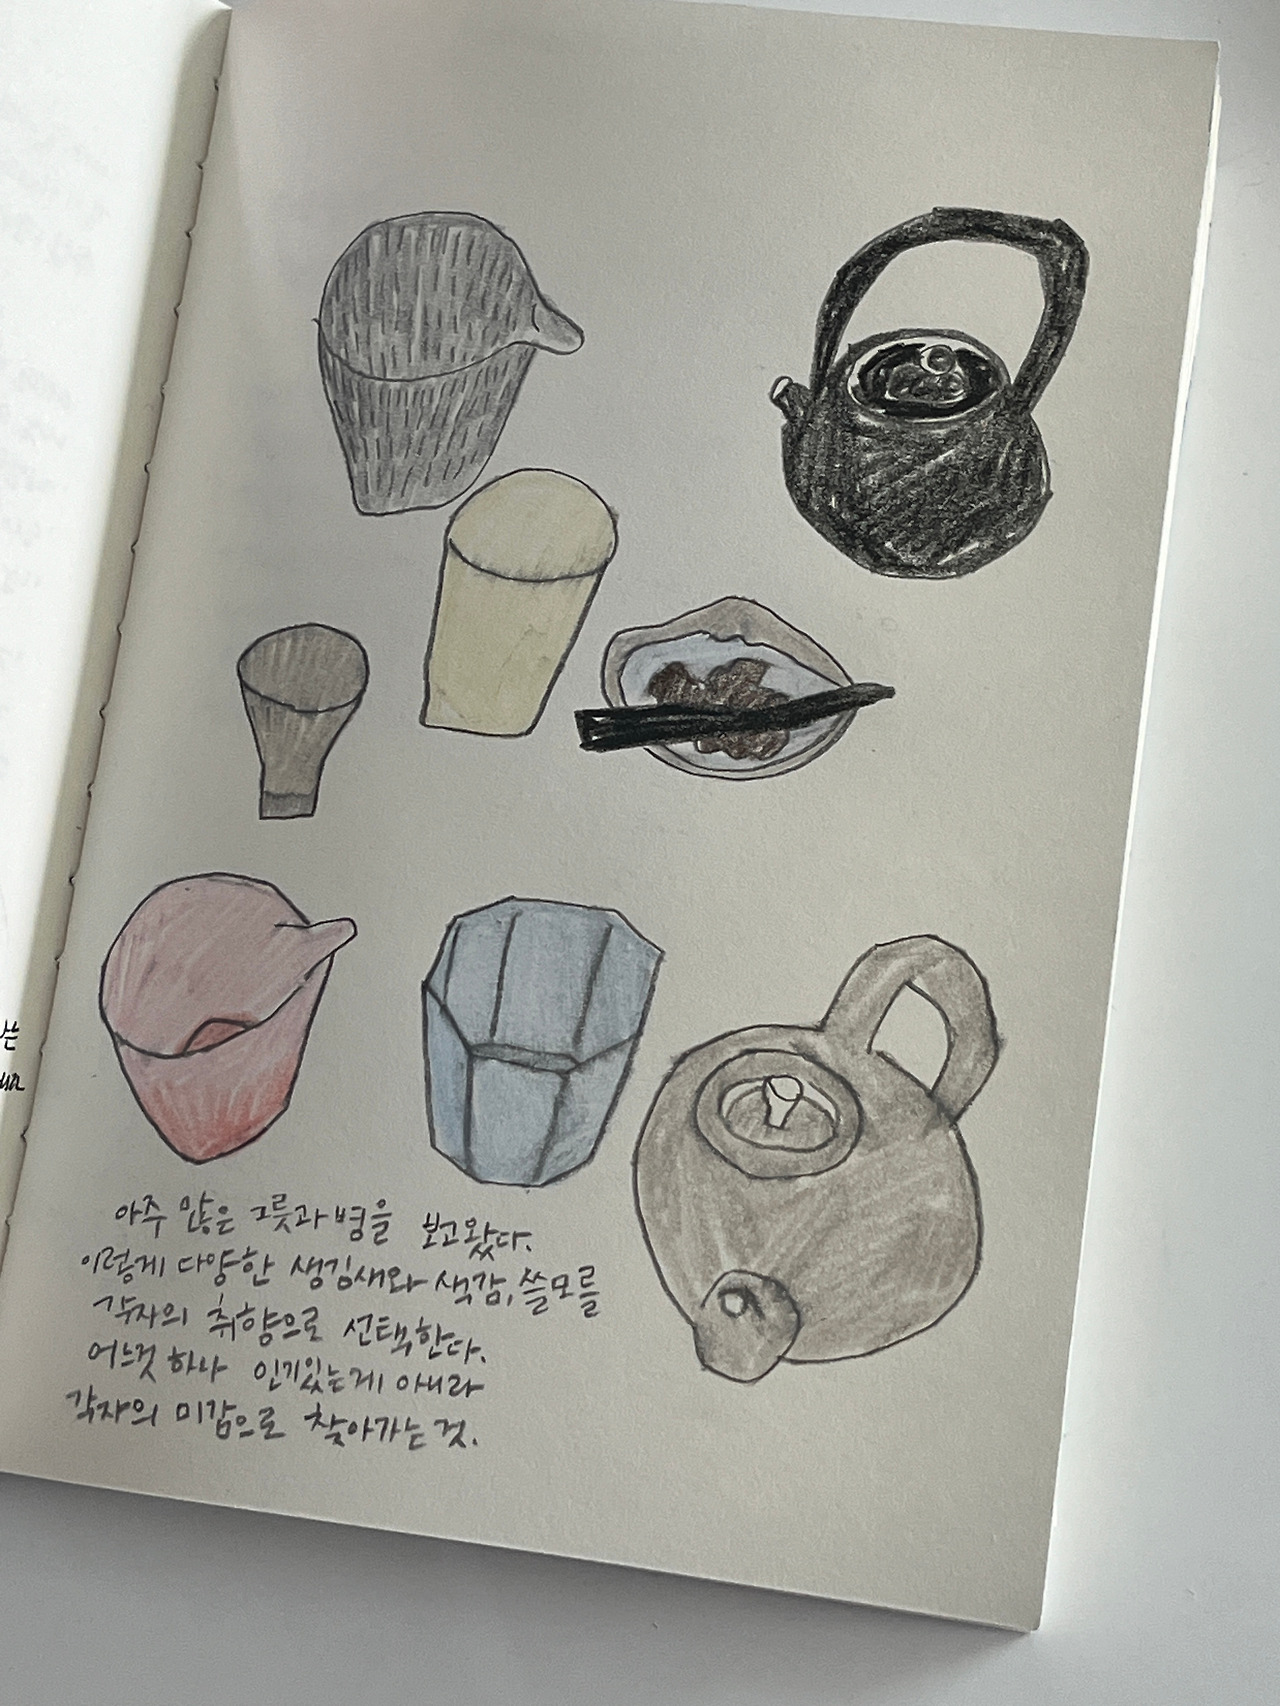 아주 많은 그릇과 병을 보고왔다.
이렇게 다양한 생김새와 색감, 쓸모를
각자의 취향으로 선택한다.
어느것 하나 인기있는게 아니라
각자의 미감으로 찾아가는 것.
는